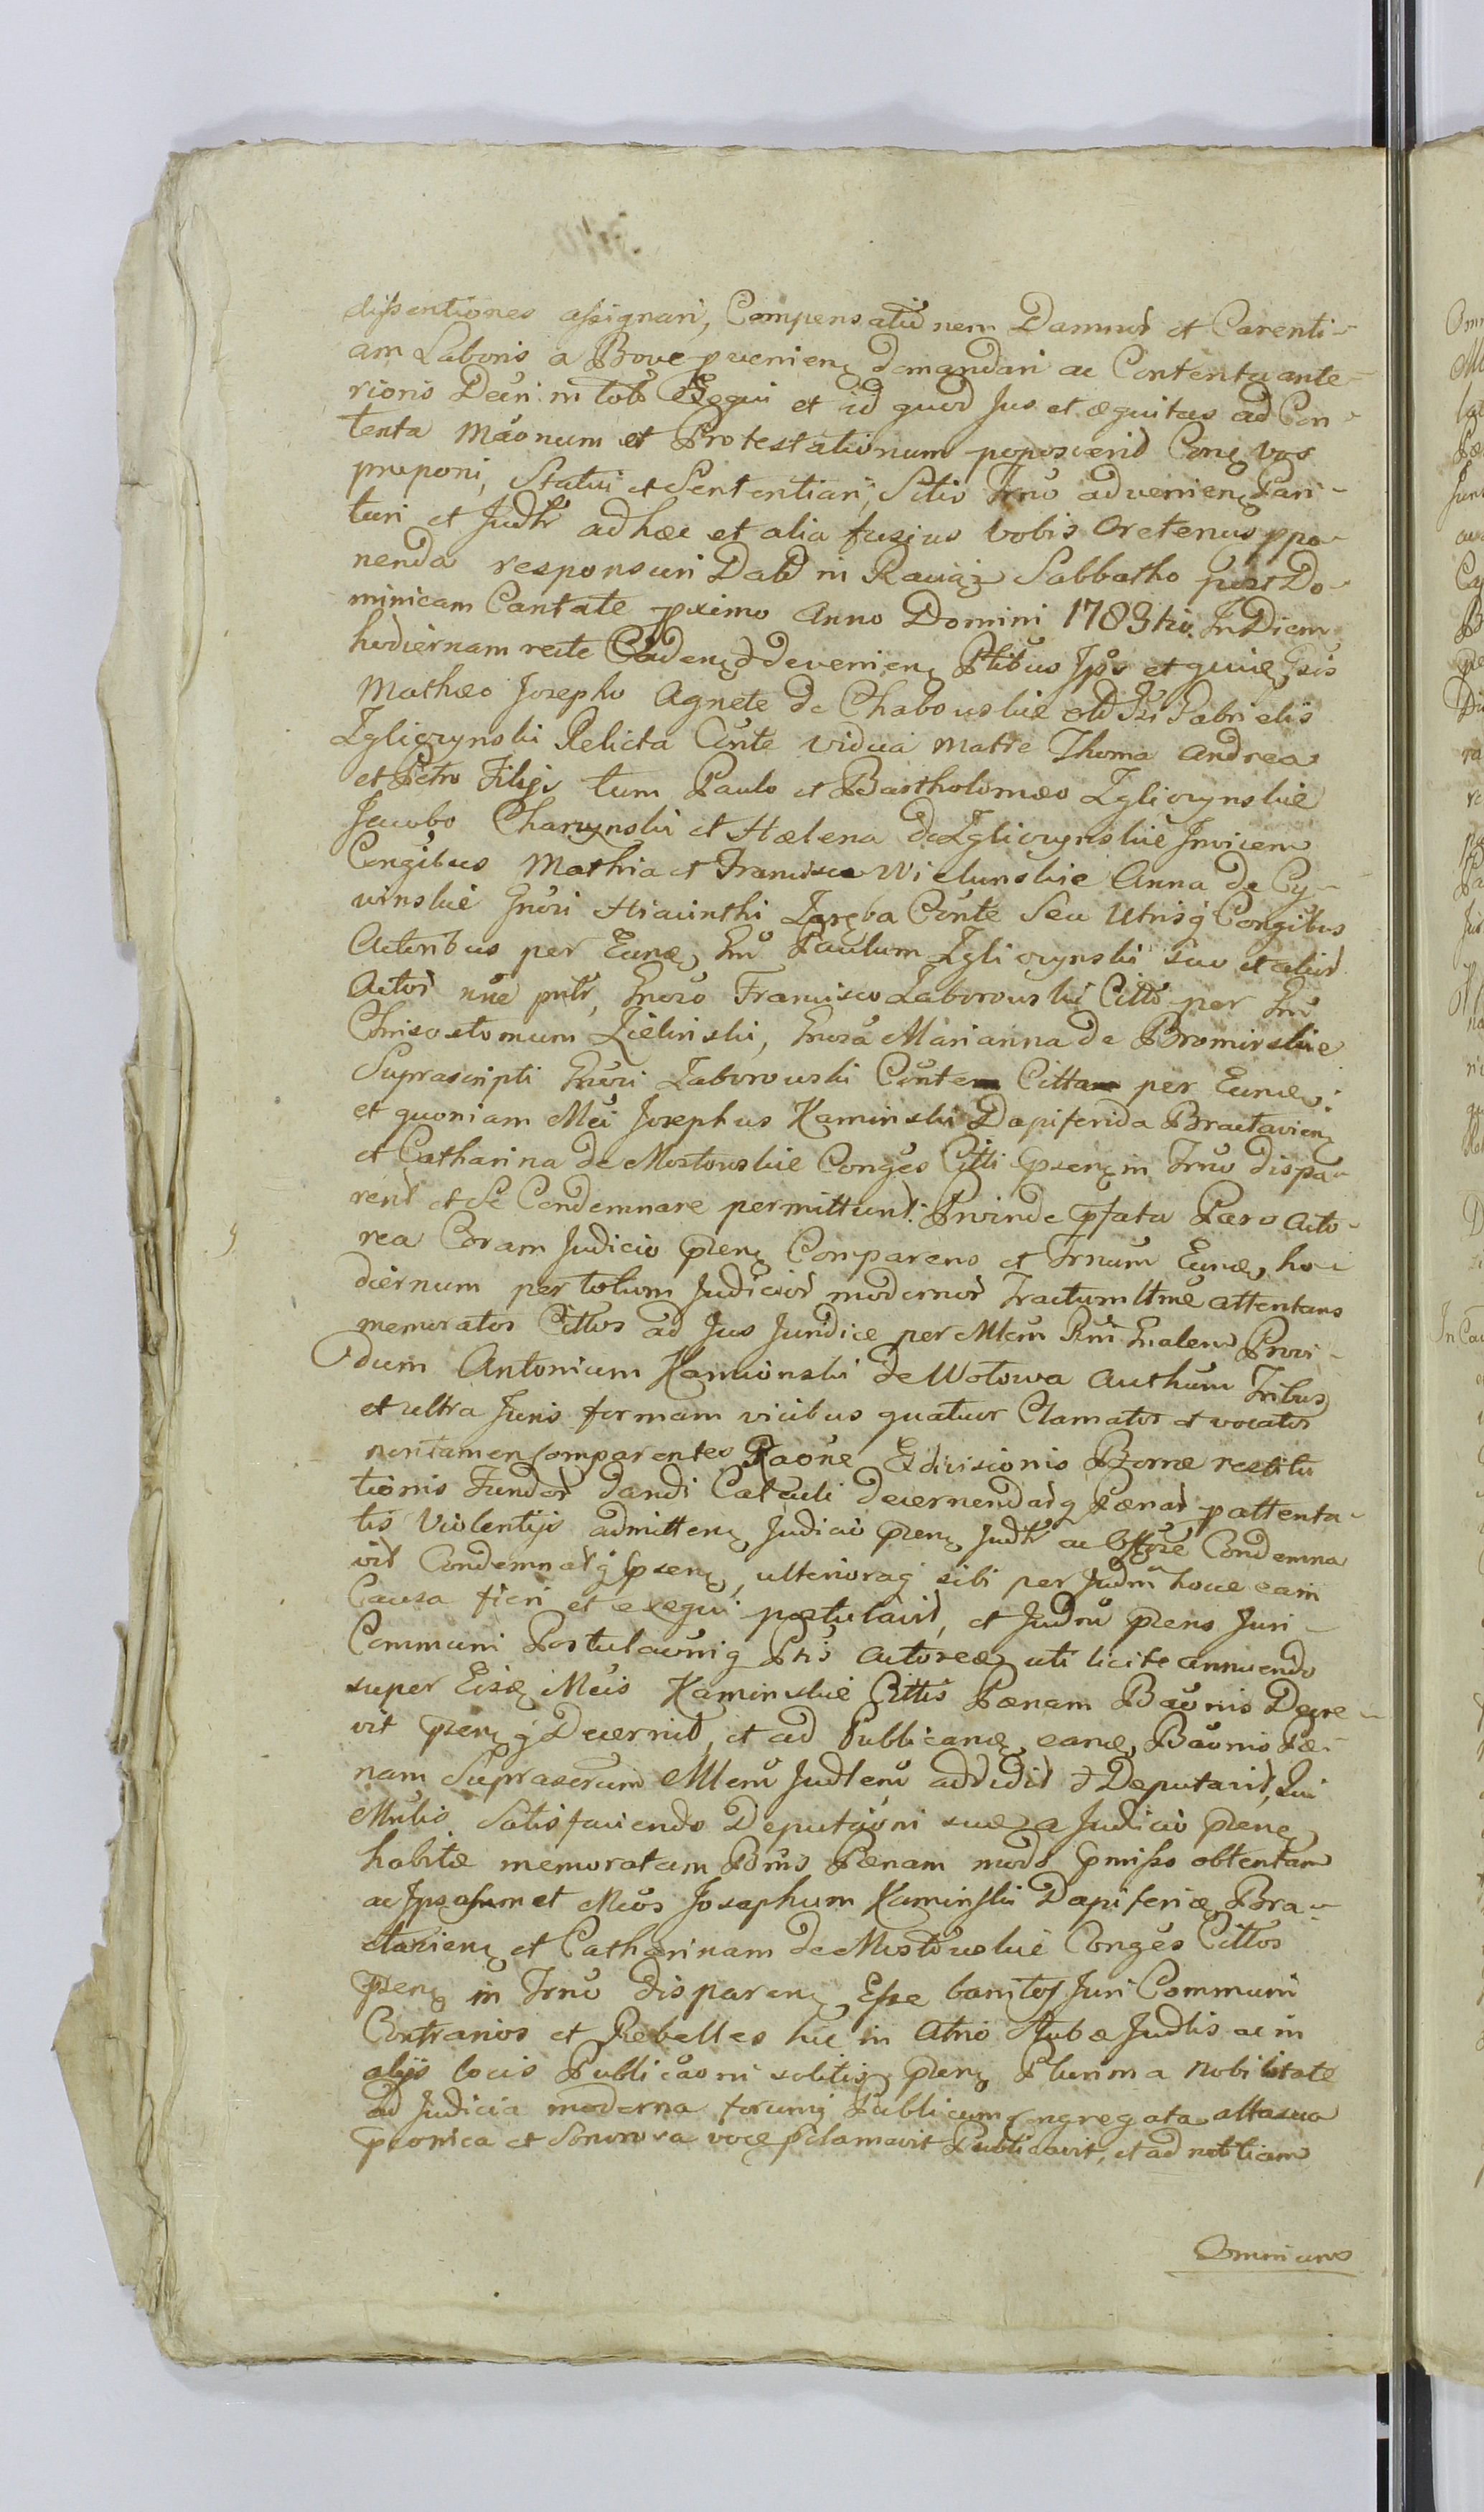 dissentiones assignari, Compensationem Damnor et Carenti-
am Laboris a Bove pvenien demandari ac Contenta ante-
rioris Decri in toto Exequi et id quod Jus et æquitas ad Con-
tenta Mãonum et Protestationum poposcerid Con vos
preponi, Statui et Sententiari, Sitis Trno advenien Pari-
turi et Judlr ad hæc et alia fusius vobis oretenus ppo-
nenda responsuri Datt in Raciąz Sabbatho post Do-
minicam Cantate pximo Anno Domini 1783tio. In Diem
hodiernam recte Caden et devenien Ptibus Ipis et quie Gsis
Mathæo Josepho Agnete de Chabowskie olt Gsi Gabrielis
Zgliczynski Relicta Cönte vidua Matre Thoma Andrea
et Petro Filijs tum Paulo et Bartholomæo Zgliczynskie
Jacobo Charzynski et Hælena de Zgliczynskie Invicem
Congibus Mathia et Francisca Wielunskie Anna de Cy-
winskie Gnosi Hiacinthi Zaręba Cönte Seu Utrisq Congibus
Actoribus per Eunæ Gm Paulum Zgliczynski suo et alior
Actor nõe pntr, Gnoso Francisco Zaborowski Citto per Gm
Chrisostomum Zielinski, Gnosa Marianna de Bromirskie
Suprascripti Gnosi Zaborowski Cönte Citta per Eunde:
et quoniam Mci Josephus Kaminski Dapiferida Braclavien
et Catharina de Mostowskie Conges Citti Gpsen in Trno dispa-
rent et Se Condemnare permittunt. Proinde Gpfata Pars Acto-
rea Coram Judicio Gpsen Comparens et Trnum Eunæ ho-
diernum per totum Judicior modernor Tractum ltme attentans
memoratos Cittos ad Jus Juridice per Mlem Rm Gnalem Provi-
dum Antonium Kamionski de Wotowa Authum Tribus
et ultra Juris formam vicibus quatuor Clamatos et vocatos
non tamen comparentes Raõne Exdivisionis Bonæ restitu
tionis Fundor dandi Calculi decernendarq Pænar pattenta-
tis Violentijs admitten Judicio Gpsen Judlr ac Offose Condemna
vit Condemnatq Gpsen, ulterioraq sibi per Judm hocce eam
Causa fieri et exequi postulavit, et Judm Gpsens Juri
Communi Postulaõniq Ptis Actoreæ uti licite annuendo
super Eisæ Mcis Kaminskie Cittis Pænam Baõnis Decre-
vit Gpsenq Decernit, et ad Publicandæ eanæ Baõnis Pæ-
nam Suprascrum Mlem Judlem addidit et Deputavit, Qui
Mnlis Satisfaciendo Deputaõni suæ a Judicio Gpsen
habitæ memoratam Bnis Pænam modo Gpmisso obtentam
ac Ipsosmet Mcos Josephum Kaminski Dapiferidæ Bra-
clavien et Catharinam de Mostowskie Conges Cittos
Gpsen in Trno disparen Esse banitos Juri Communi
Contrarios et Rebelles hic in Atrio Stubæ Judlis ac in
alijs locis Publicaõni solitis Gpsen Plurima Nobilitate
ad Judicia moderna forumq Publicum congregata alta sua
Gpconica et Sonorora voce pclamavit Publicavit, et ad notitiam
Omnium